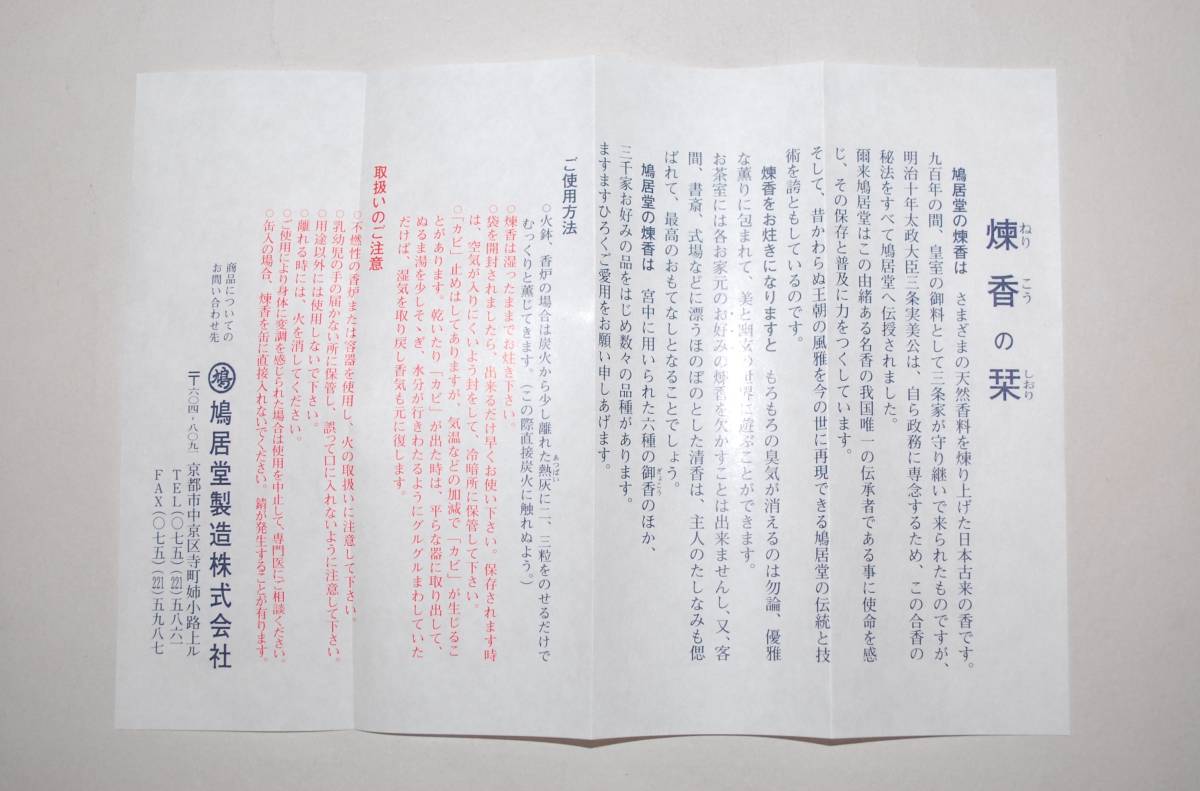 煉香の栞
鳩居堂の煉香は さまざまの天然香料を煉り上げた日本古来の香です。
九百年の間、皇室の御料として三条家が守り継いで来られたものですが、
明治十年太政大臣三条実美公は、自ら政務に専念するため、この合香の
秘法をすべて鳩居堂へ伝授されました。
爾来鳩居堂はこの由緒ある名香の我国唯一の伝承者である事に使命を感
じ、その保存と普及に力をつくしています。
そして、昔かわらぬ王朝の風雅を今の世に再現できる鳩居堂の伝統と技
術を誇ともしているのです。
煉香をお炷きになりますと もろもろの臭気が消えるのは勿論、優雅
な薫りに包まれて、美と幽玄の世界に遊ぶことができます。
お茶室には各お家元のお好みの煉香を欠かすことは出来ませんし、又、客
間、書斎、式場などに漂うほのぼのとした清香は、主人のたしなみも偲
ばれて、最高のおもてなしとなることでしょう。
鳩居堂の煉香は 宮中に用いられた六種の御香のほか、
三千家お好みの品をはじめ数々の品種があります。
ますますひろくご愛用をお願い申しあげます。
ご使用方法
○火鉢、香炉の場合は炭火から少し離れた熱灰に二、三粒をのせるだけで
むっくりと薫じてきます。（この際直接炭火に触れぬよう。）
○煉香は湿ったままでお炷き下さい。
○袋を開封されましたら、出来るだけ早くお使い下さい。保存されます時
は、空気が入りにくいよう封をして、冷暗所に保管して下さい。
○「カビ」止めはしてありますが、気温などの加減で「カビ」が生じるこ
とがあります。乾いたり「カビ」が出た時は、平らな器に取り出して、
ぬるま湯を少しそゝぎ、水分が行きわたるようにグルグルまわしていた
だけば、湿気を取り戻し香気も元に復します。
取扱いのご注意
○不燃性の香炉または容器を使用し、火の取扱いに注意して下さい。
○乳幼児の手の届かない所に保管し、誤って口に入れないように注意して下さい。
○用途以外には使用しないで下さい。
○離れる時には、火を消してください。
○ご使用により身体に変調を感じられた場合は使用を中止して、専門医にご相談ください。
○缶入の場合、煉香を缶に直接入れないでください。錆が発生することが有ります。
商品についての
お問い合わせ先
鳩 鳩居堂製造株式会社
〒六〇四-八〇九一 京都市中京区寺町姉小路上ル
TEL（〇七五）（221）五八六一
FAX（〇七五）（221）五九八七